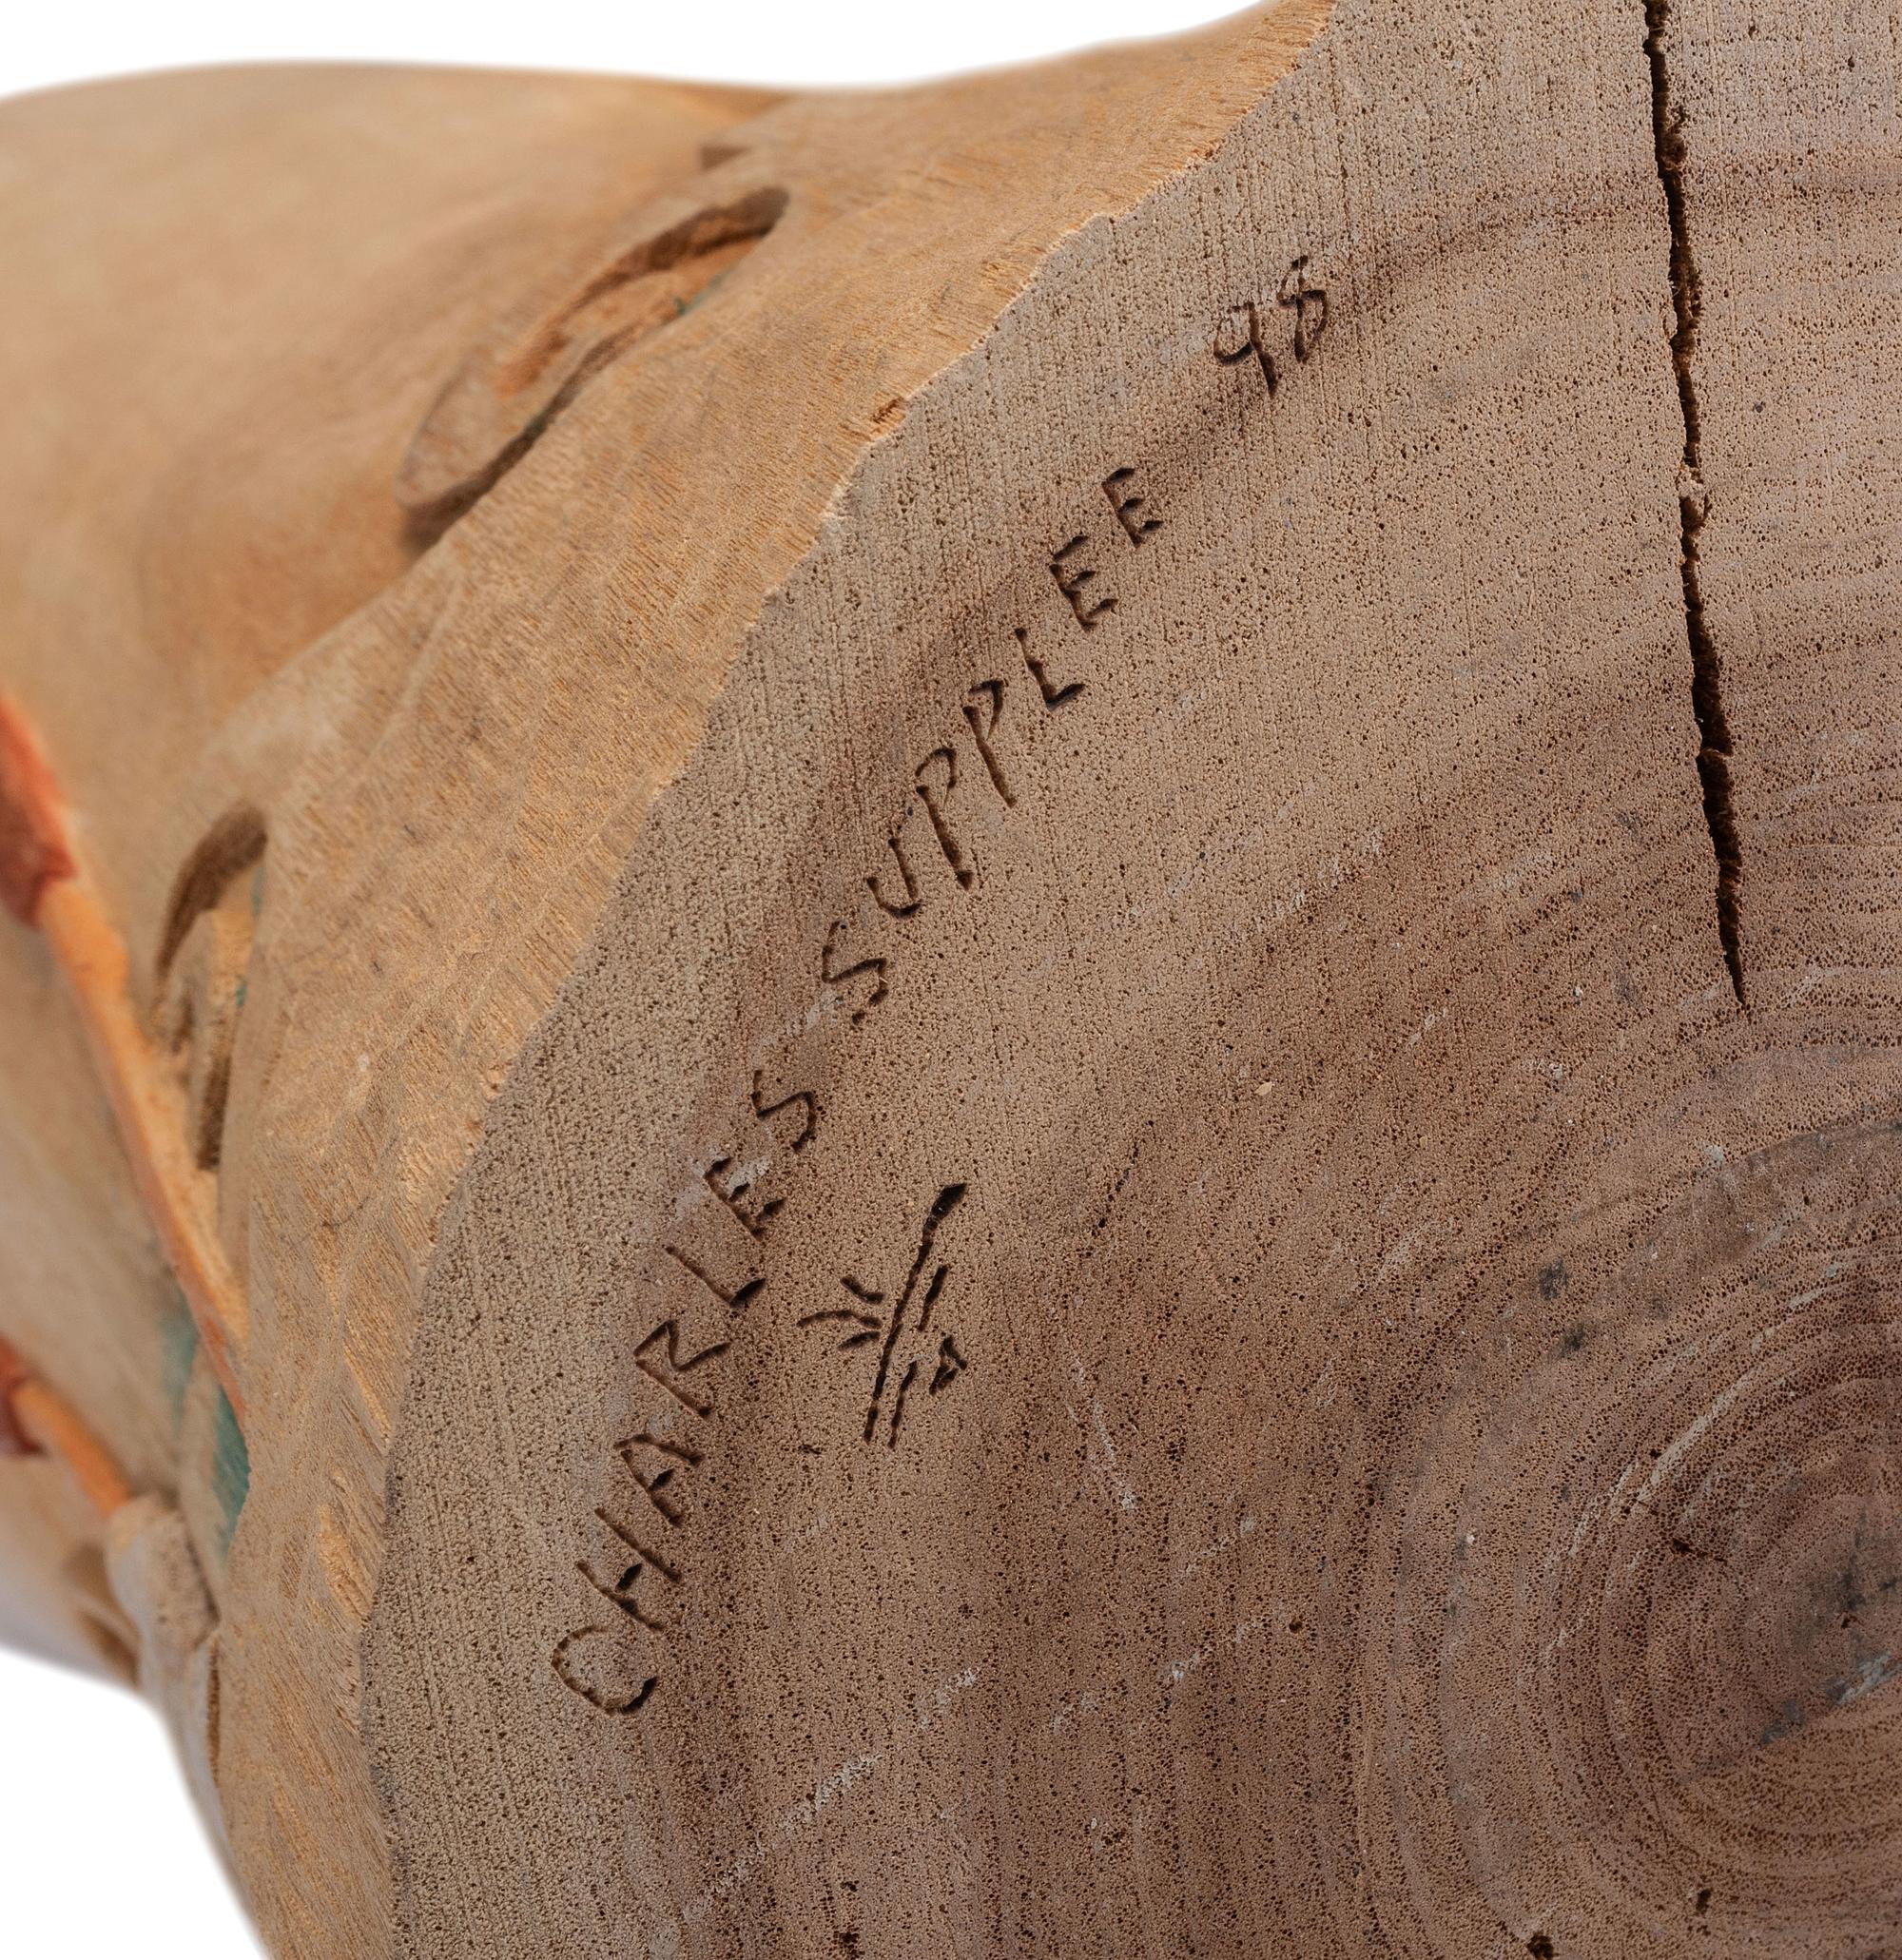 CHARLES SUPPLEE 98